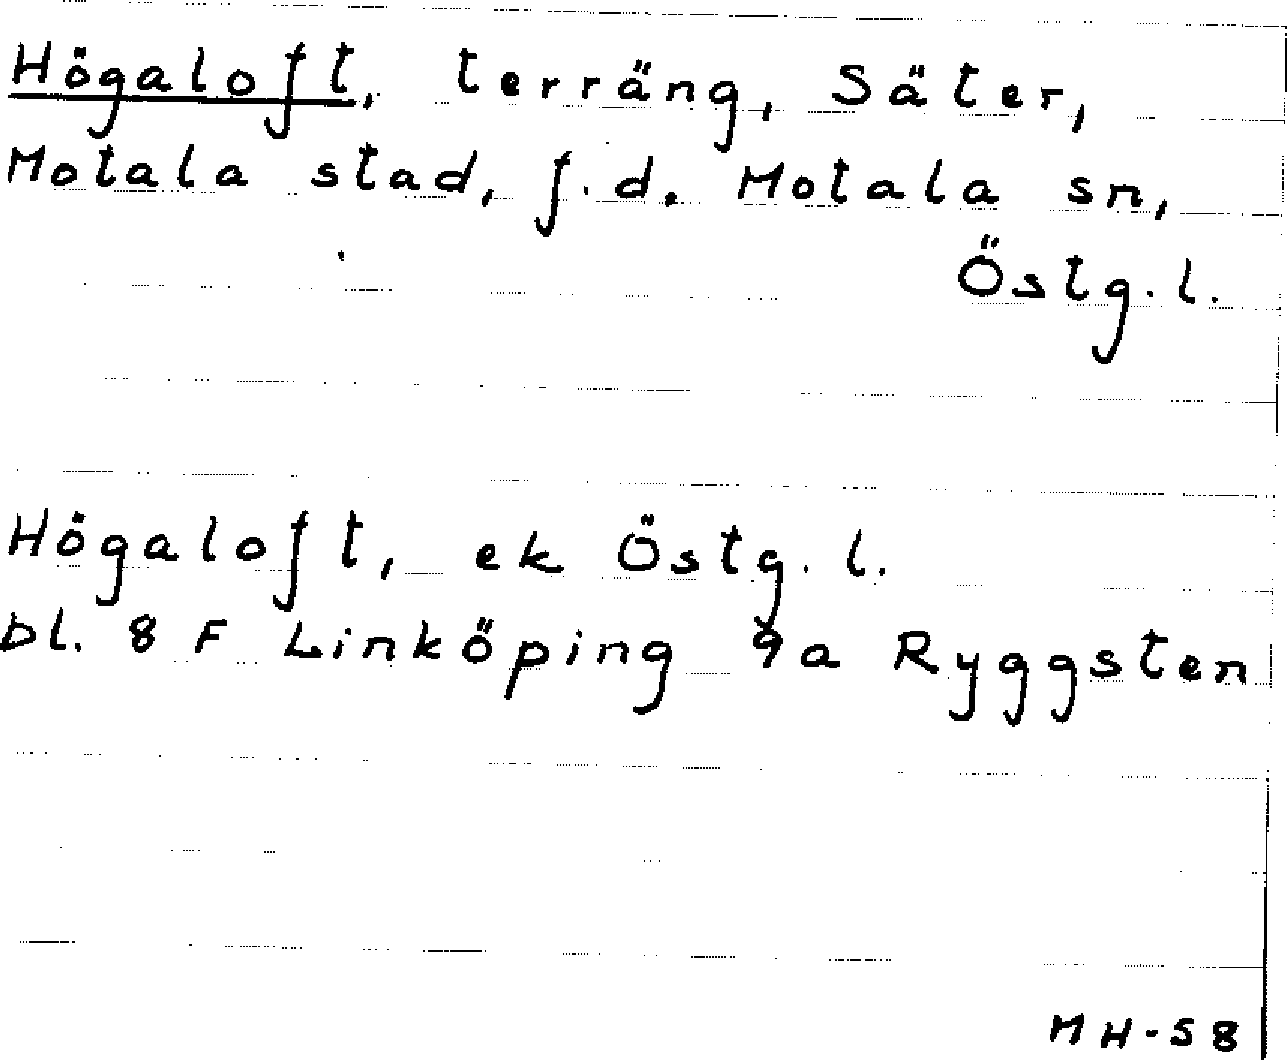 Högaloft, terräng, Säter,
Motala stad, f.d. Motala sn,
Östg.l.
Högaloft, ek Östg.l.
bl. 8 F Linköping 9a Ryggsten
MH-58